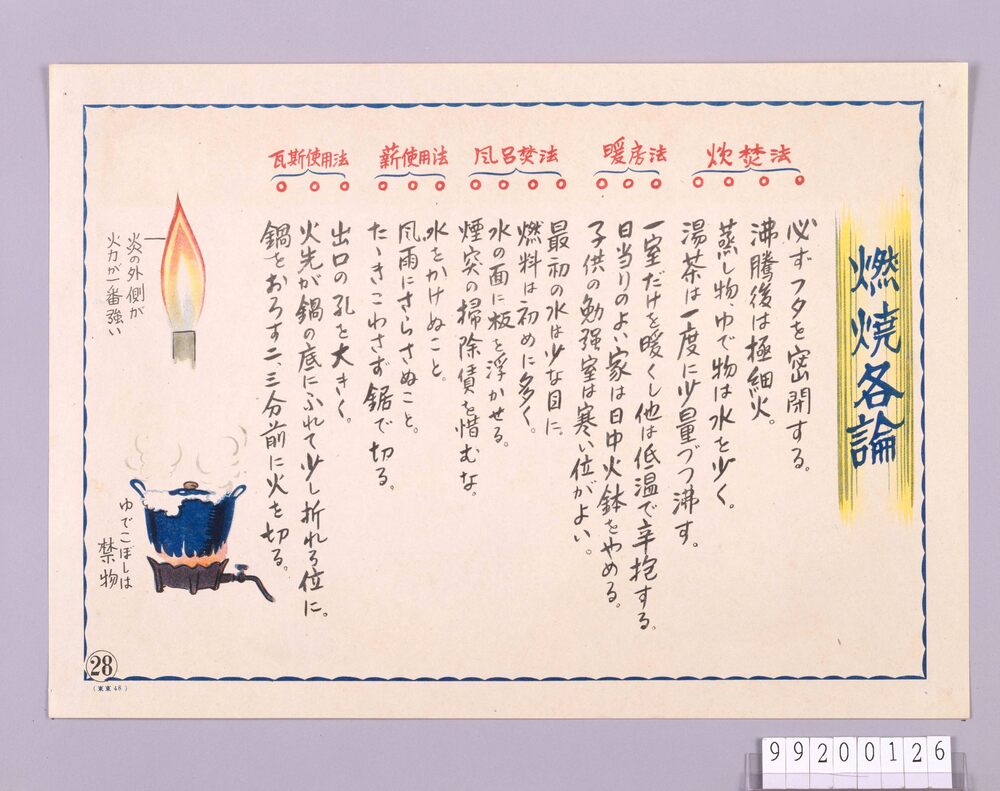 燃焼各論
炊焚法
必ずフタを密閉する。
沸騰後は極細火。
蒸し物、ゆで物は水を少く。
湯茶は一度に少量づつ沸す。
暖房法
一室だけを暖くし他は低温で辛抱する。
日当りのよい家は日中火鉢をやめる。
子供の勉強室は寒い位がよい。
風呂焚法
最初の水は少な目に。
燃料は初めに多く。
水の面に板を浮かせる。
煙突の掃除賃を惜むな。
薪使用法
水をかけぬこと。
風雨にさらさぬこと。
たきこわさず鋸で切る。
瓦斯使用法
出口の孔を大きく。
火先が鍋の底にふれて少し折れる位に。
鍋をおろす二、三分前に火を切る。
炎の外側が
火力が一番強い
ゆでこぼしは
禁物
28
(東東48)
99200126